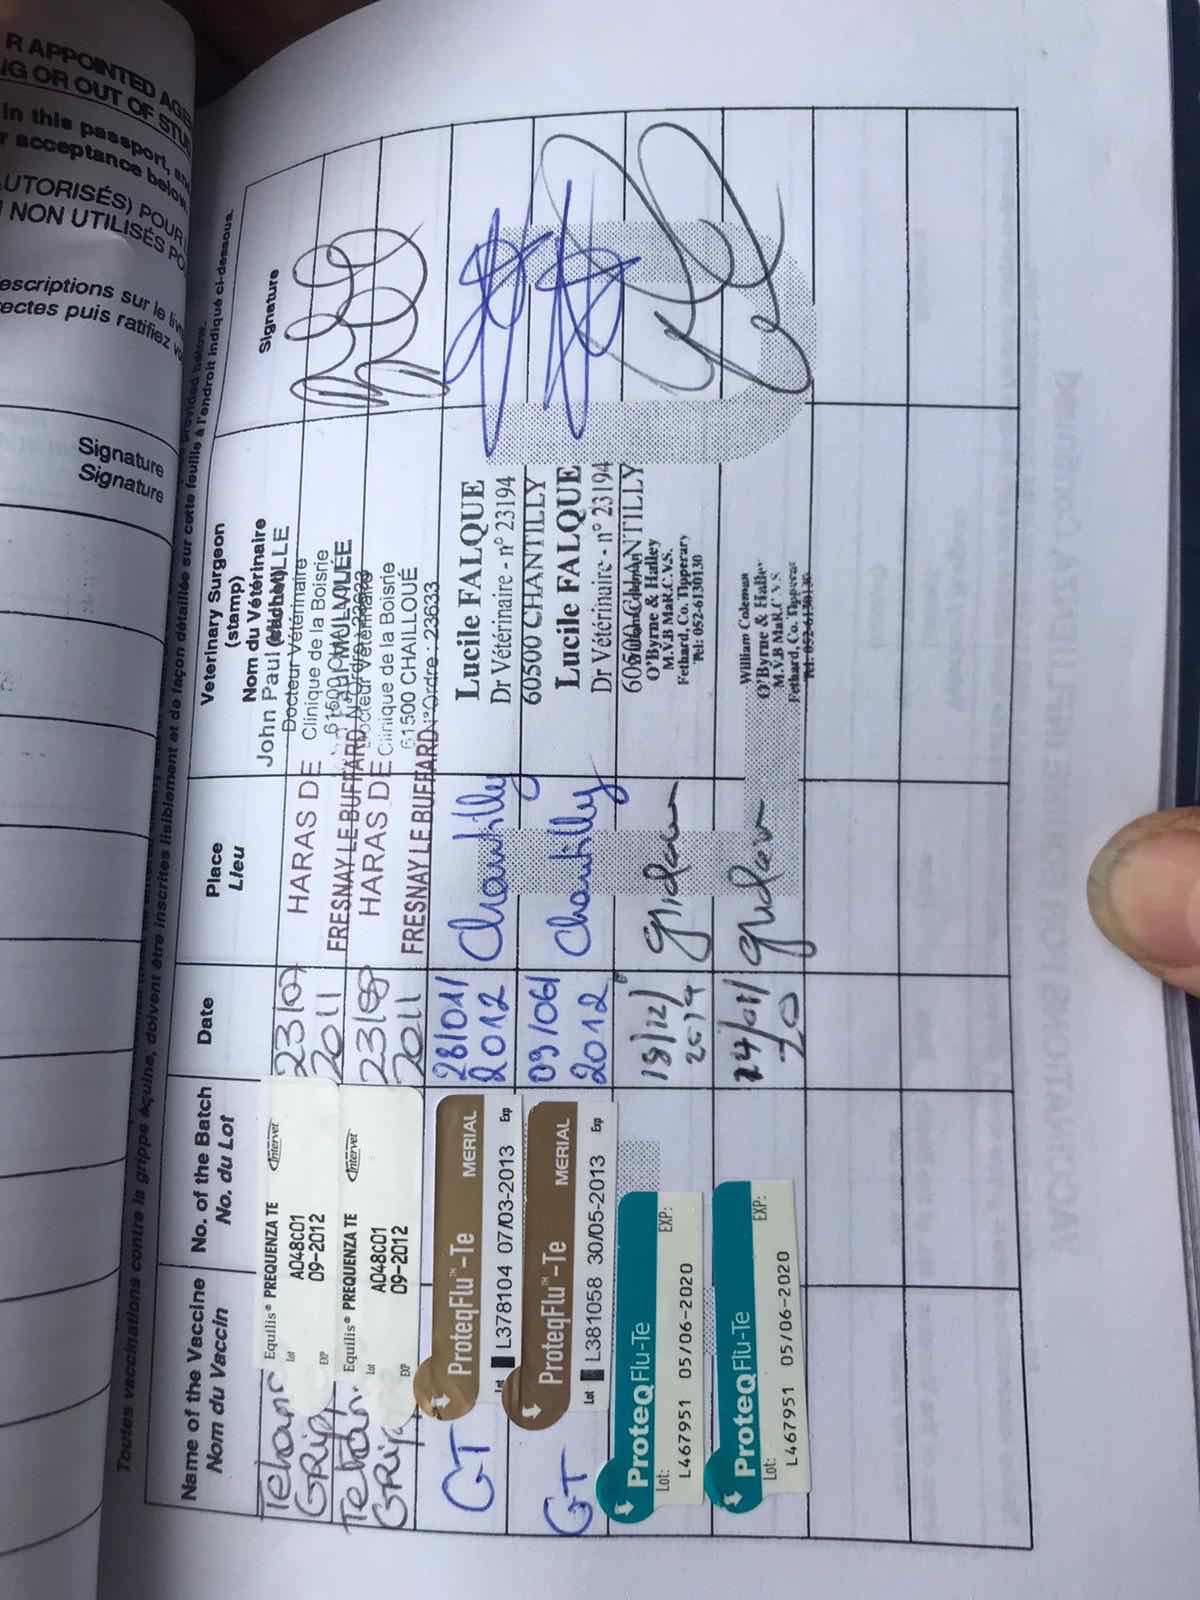 R APPOINTED
NG OR OUT OF
in this passport,
r acceptance below.
AUTORISÉS) POUR
NON UTILISÉS
escriptions sur le
ectes puis ratifiez
Signature
Signature
provided below.
Toutes vaccinations contre la grippe équine, doivent être inscrites lisiblement et de façon détaillée sur cette feuille à l'endroit indiqué ci-dessous.
Name of the Vaccine
Nom du Vaccin
No. of the Batch
No. du Lot
Date
Place
Lieu
Veterinary Surgeon
(stamp)
Nom du Vétérinaire
Signature
Equilis® PREQUENZA TE
Intervet
Lot A048C01
EXP 09-2012
2011
HARAS DE
FRESNAY LE BUFFARD
John Paul
Docteur Vétérinaire
Clinique de la Boisrie
Equilis® PREQUENZA TE
Intervet
Lot A048C01
EXP 09-2012
2011
HARAS DE
FRESNAY LE BUFFARD
Docteur Vétérinaire
Clinique de la Boisrie
61500 CHAILLOUÉ
N°Ordre : 23633
GT
ProteqFlu™-Te
MERIAL
Lot L378104 07/03-2013 Exp
28/01/
2012
Chantilly
Lucile FALQUE
Dr Vétérinaire - n° 23194
60500 CHANTILLY
GT
ProteqFlu™-Te
MERIAL
Lot L381058 30/05-2013 Exp
09/06/
2012
Chantilly
Lucile FALQUE
Dr Vétérinaire - n° 23194
60500 CHANTILLY
ProteQFlu-Te
Lot: EXP:
L467951 05/06-2020
18/12/
2019
O'Byrne & Halley
M.V.B MaR.C.V.S.
Fethard, Co. Tipperary
Tel: 052-6130130
ProteQFlu-Te
Lot: EXP:
L467951 05/06-2020
William Coleman
O'Byrne &
M.V.B MaR.C.V.S
Fethard, Co.
Tel: 052-6130130